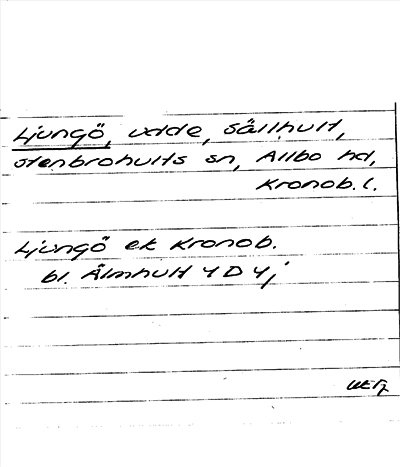 Ljungö, udde, Sällhult,
Stenbrohults sn, Allbo hd,
Kronob. l.
Ljungö ek Kronob.
bl. Älmhult 4 D 4j